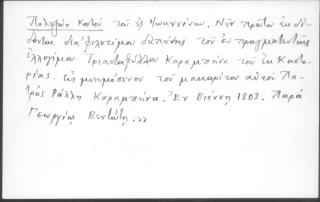 Πολυζώη Κοντοῦ τοῦ ἐξ Ἰωαννίνων. Νῦν πρῶτον ἐκδί-
δονται διὰ φιλοτίμου δαπάνης τοῦ ἐν πραγματευταῖς
ἐλλογίμου Τριανταφύλλου Καραμπήνα τοῦ ἐκ Καστο-
ρίας. Εἰς μνημόσυνον τοῦ μακαρίτου αὐτοῦ Πα-
τρός Ράλλη Καραμπήνα. Ἐν Βιέννῃ 1803. Παρά
Γεωργίῳ Βεντώτῃ.>>